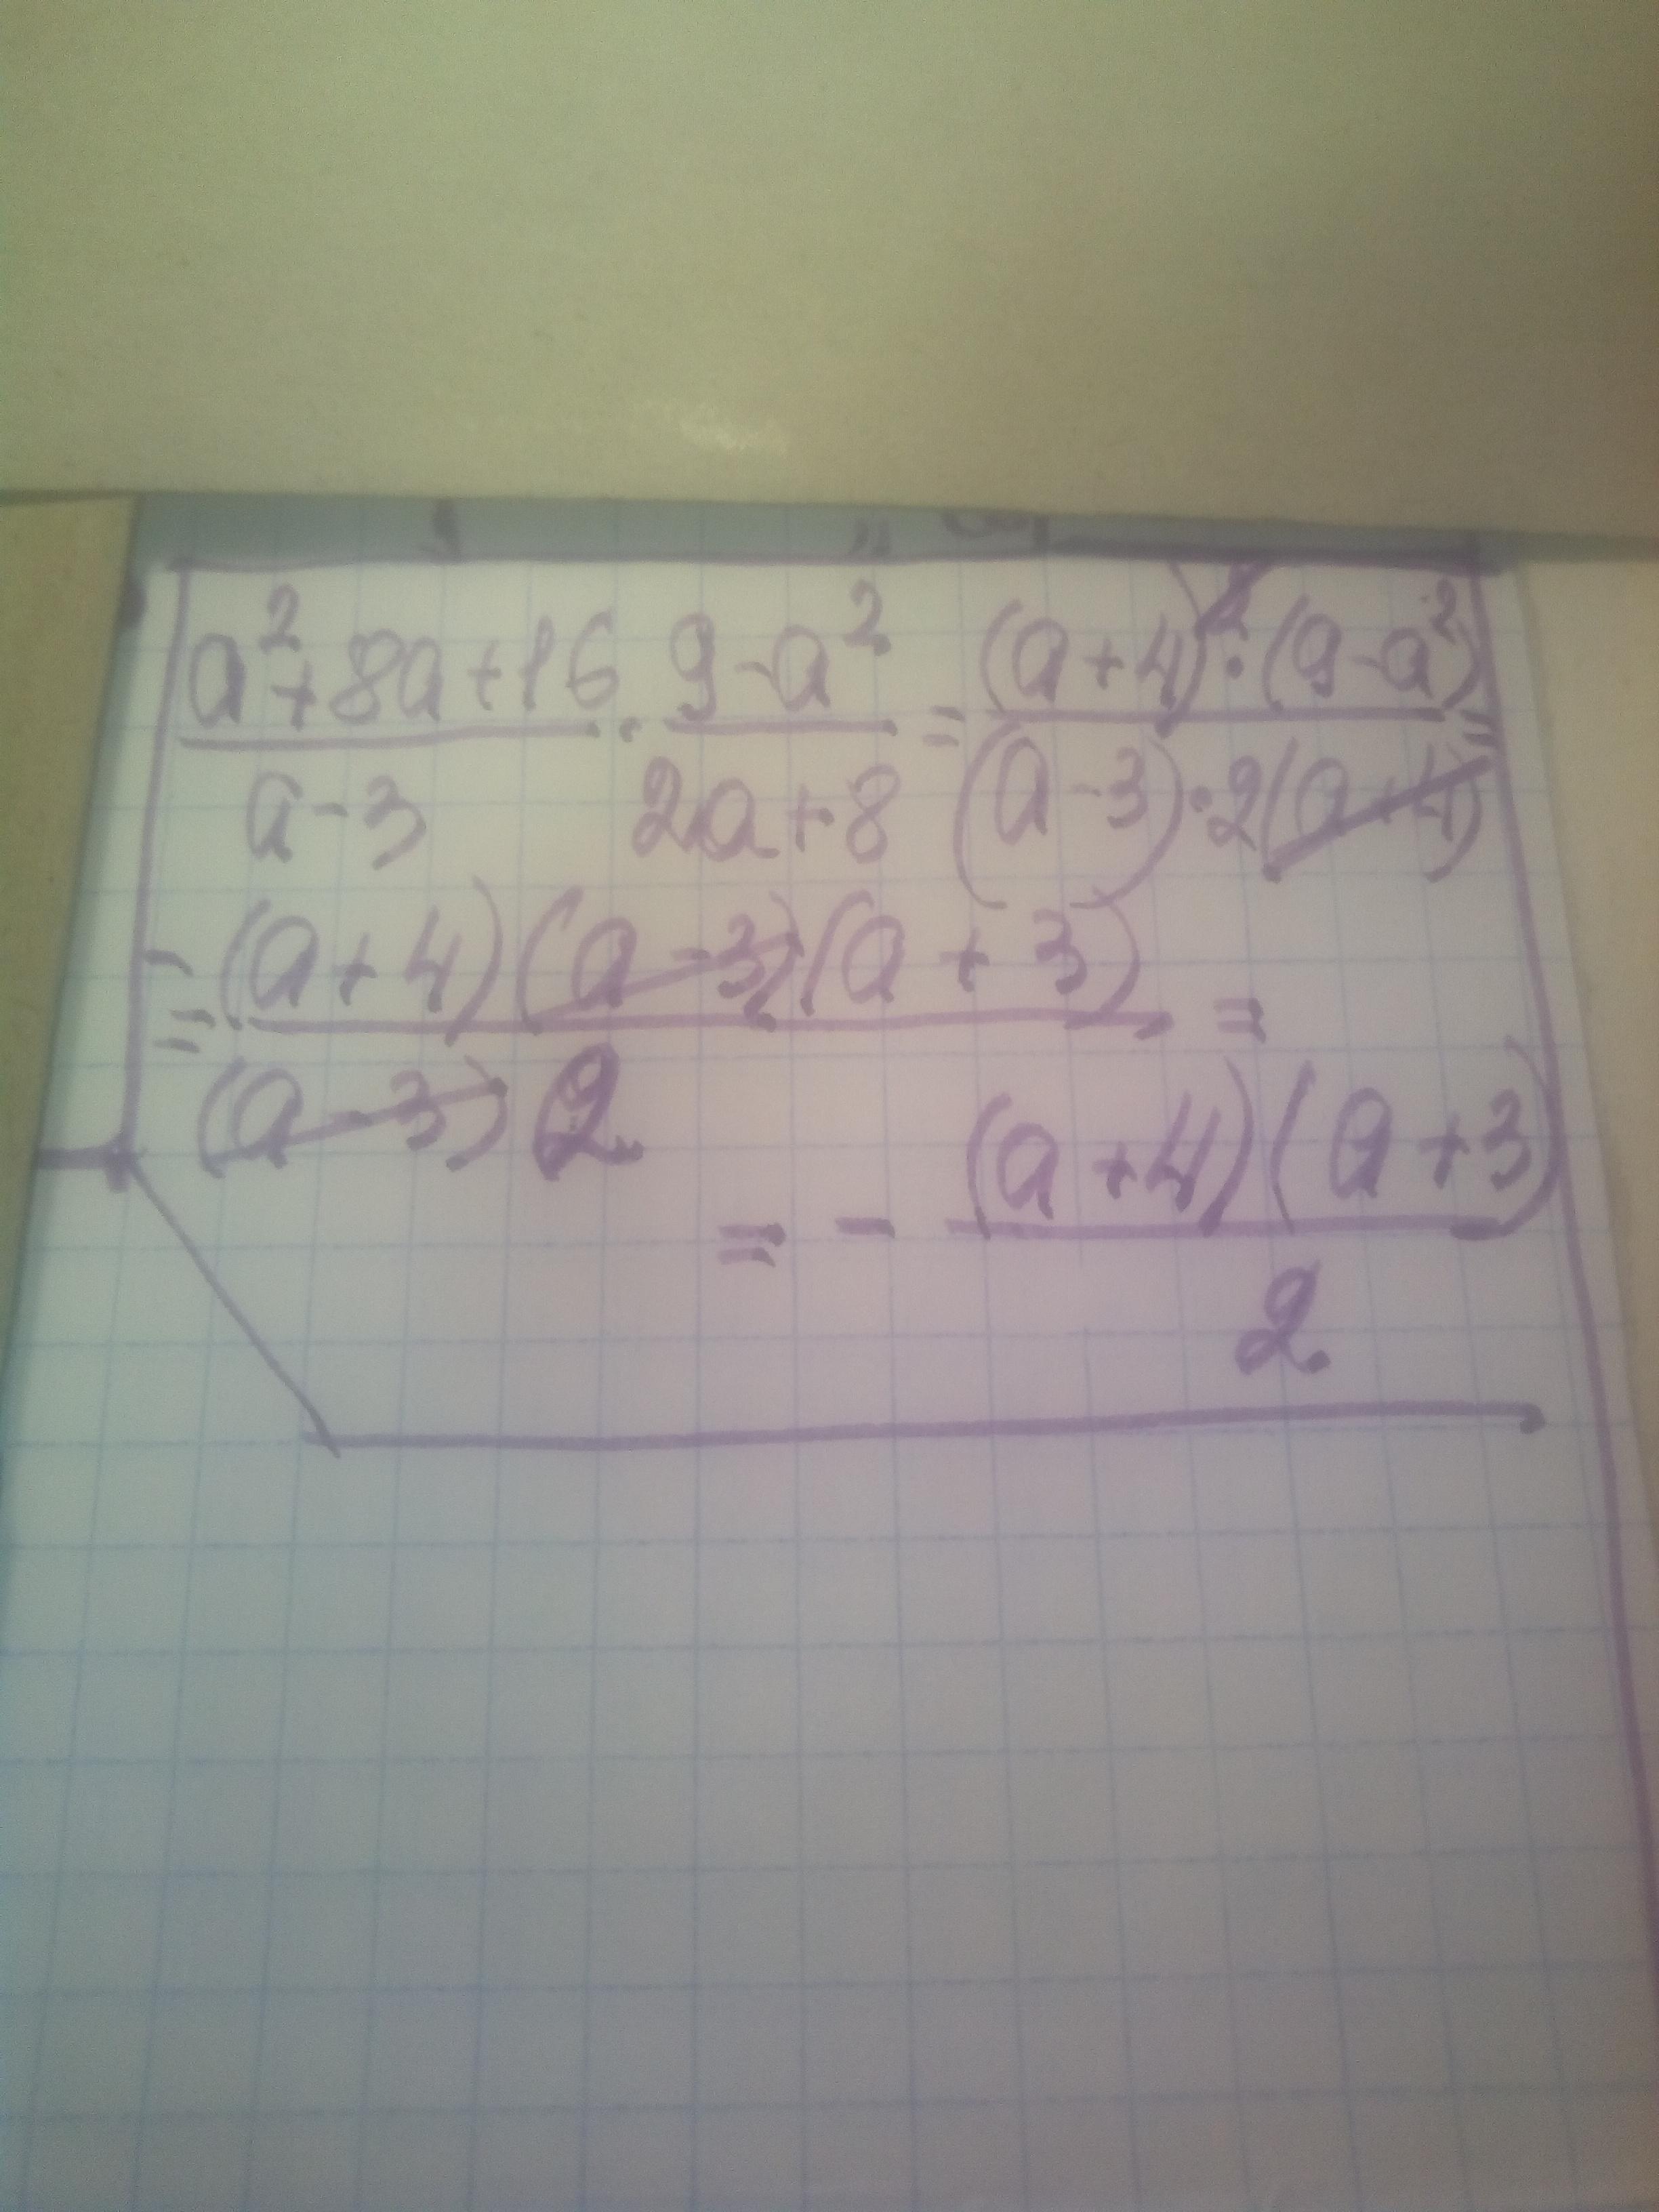 a²+8a+16 / a-3 · 9-a² / 2a+8 = (a+4)²·(9-a²) / (a-3)·2(a+4) =
= -(a+4)(a-3)(a+3) / (a-3)2 =
= - (a+4)(a+3) / 2